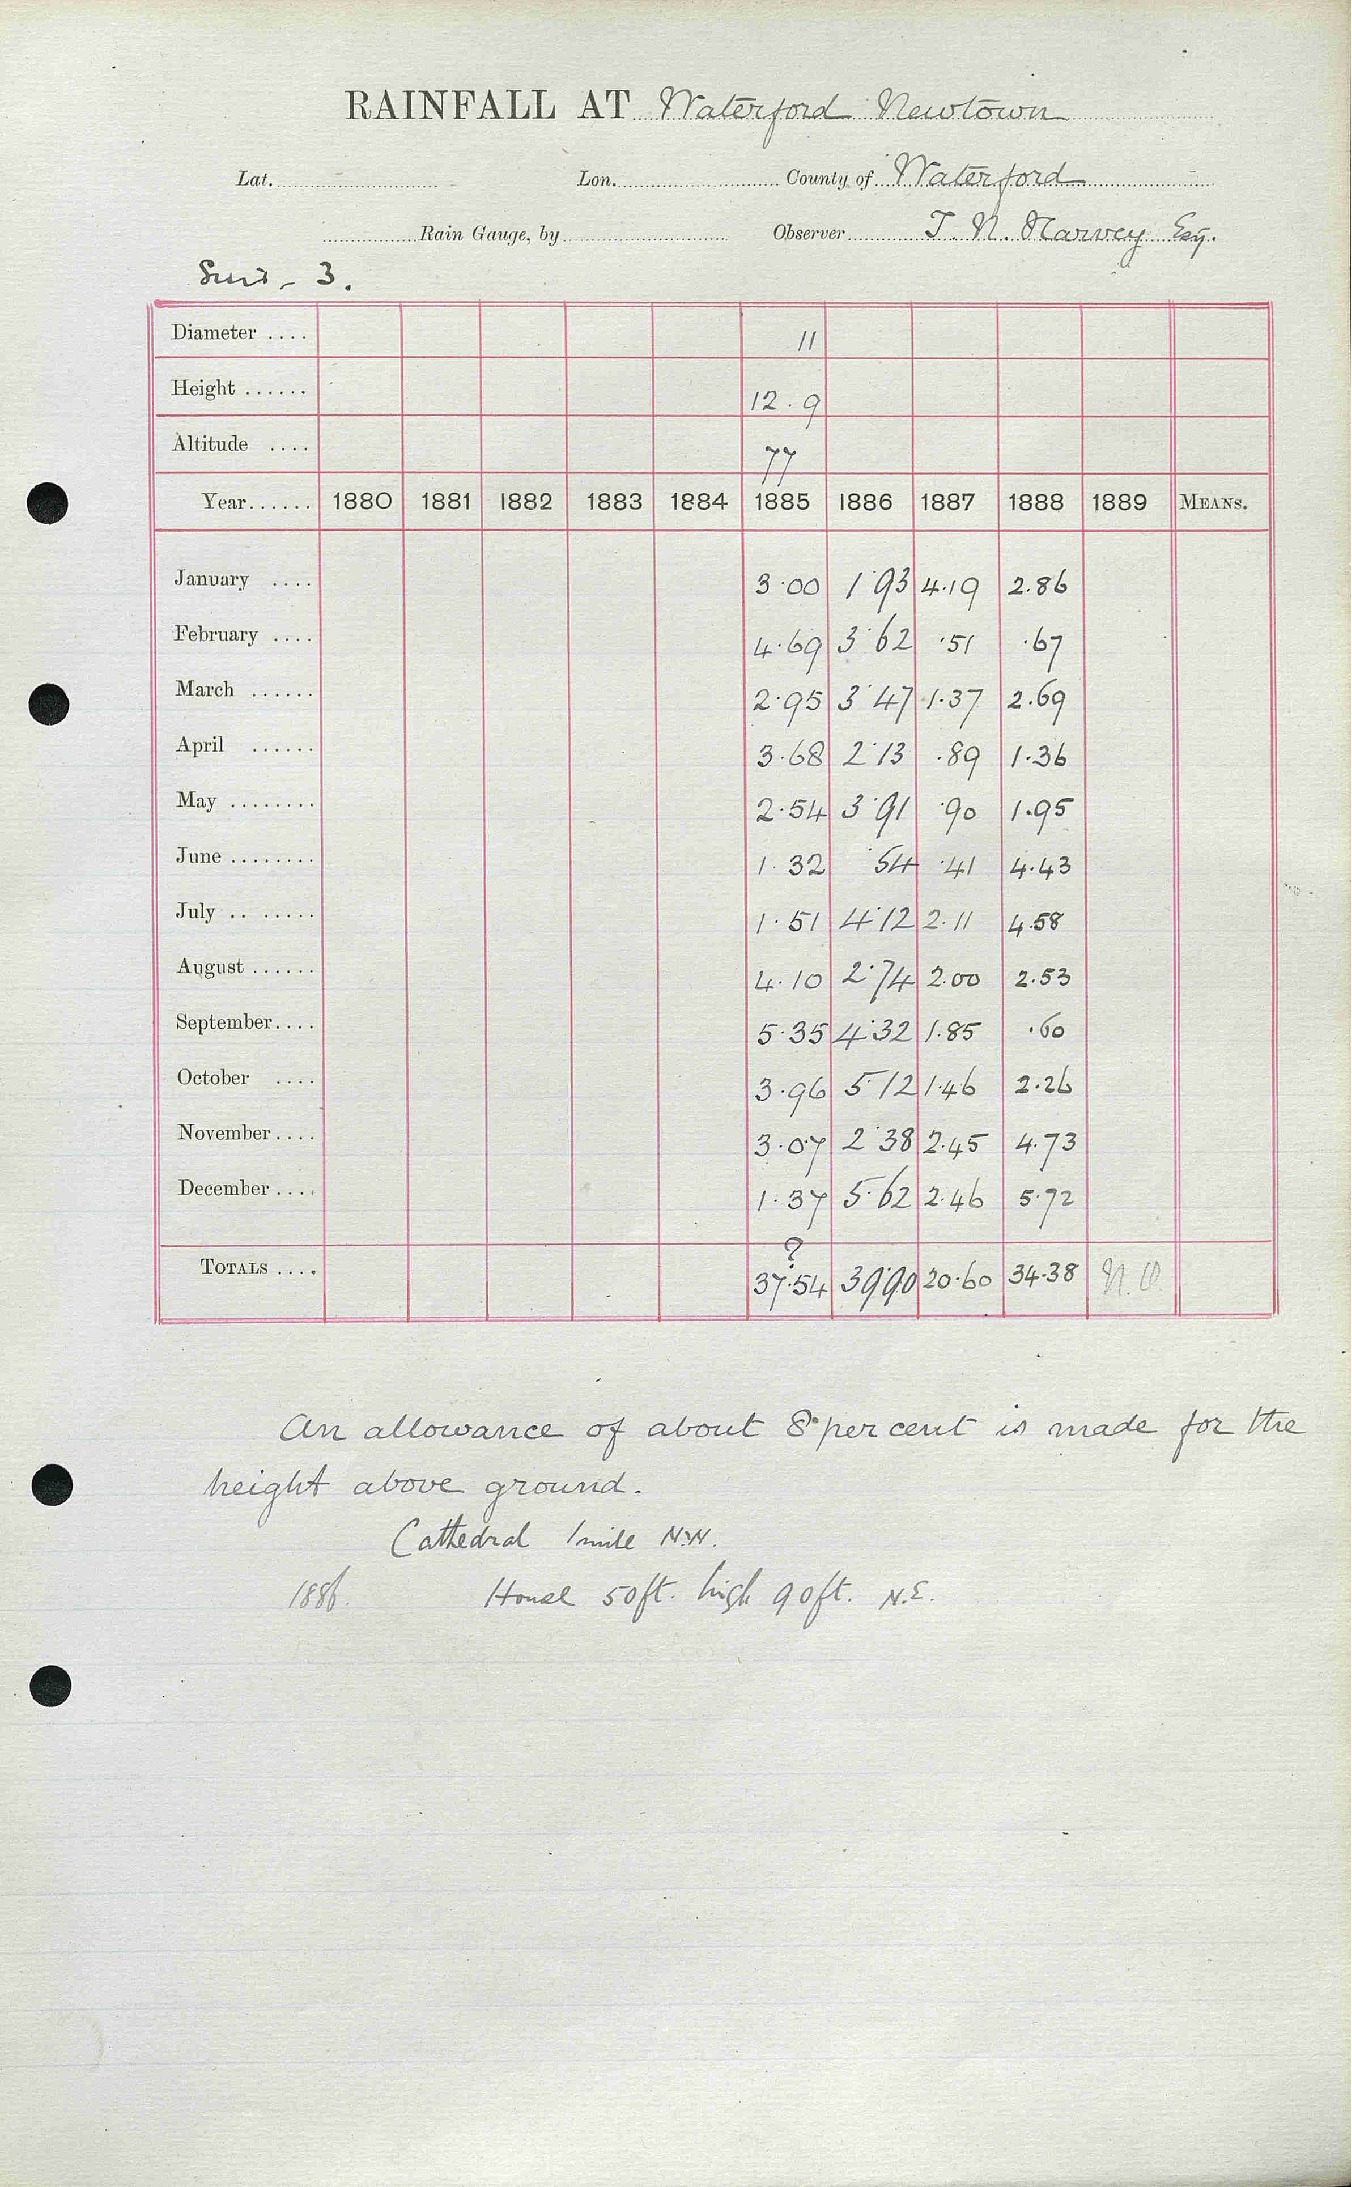 RAINFALL AT Waterford Newtown
Lat. Lon. County of Waterford
Rain Gauge, by Observer T. N. Harvey Esq.
3.
Diameter .... 11
Height ...... 12.9
Altitude .... 77
Year...... 1880 1881 1882 1883 1884 1885 1886 1887 1888 1889 MEANS.
January .... 3.00 1.93 4.19 2.86
February .... 4.69 3.62 .51 .67
March ...... 2.95 3.47 1.37 2.69
April ...... 3.68 2.13 .89 1.36
May ........ 2.54 3.91 .90 1.95
June ........ 1.32 .54 .41 4.43
July .. ...... 1.51 4.12 2.11 4.58
August ...... 4.10 2.74 2.00 2.53
September.... 5.35 4.32 1.85 .60
October .... 3.96 5.12 1.46 2.26
November.... 3.07 2.38 2.45 4.73
December.... 1.37 5.62 2.46 5.72
?
TOTALS .... 37.54 39.90 20.60 34.38 N.O.
An allowance of about 8 per cent is made for the
height above ground.
Cathedral 1 mile N.W.
1886. House 50ft. high 90ft. N.E.